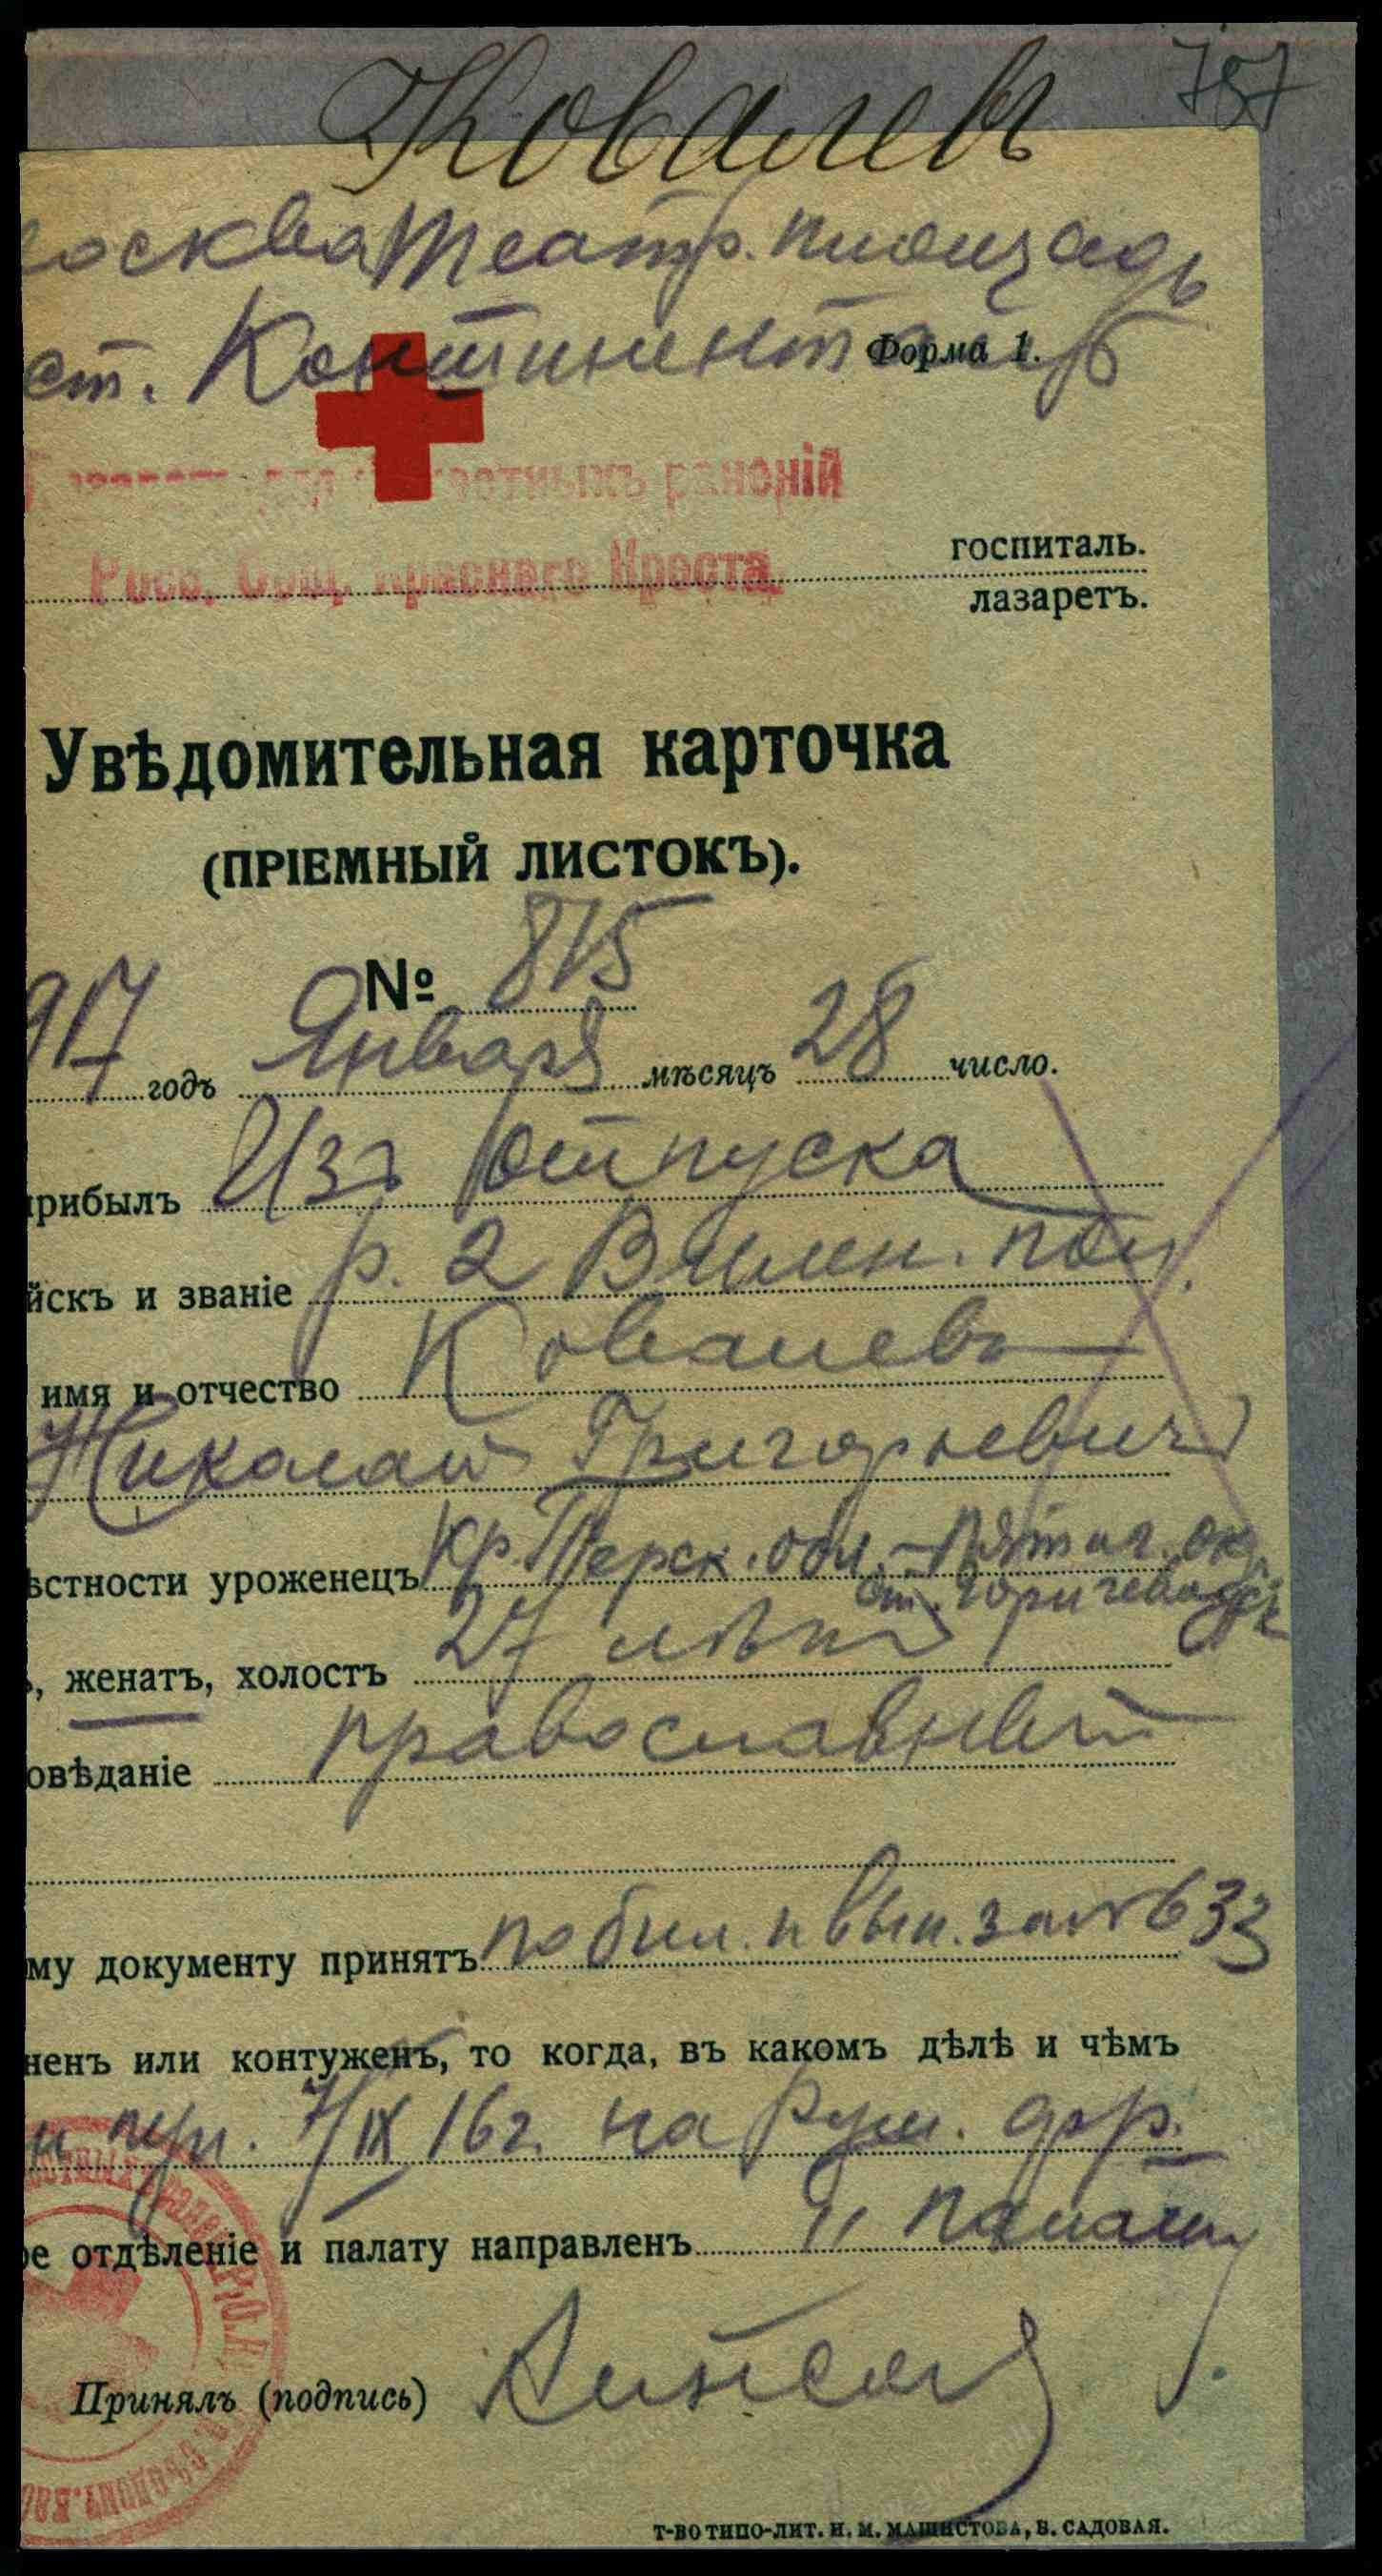 Ковалев
757
осква Театр. площадь
ст. Континенталь
Форма 1.
ранений
Росс. Общ. Краснаго Креста
госпиталь.
лазаретъ.
Увѣдомительная карточка
(ПРІЕМНЫЙ ЛИСТОКЪ).
№ 815
917 годъ Января мѣсяцъ 28 число.
прибылъ Изъ отпуска
йскъ и званіе р. 2 пол.
имя и отчество Ковалевъ
Николай Григорьевич
ѣстности уроженецъ кр. Терск. обл. - Пятиг. ок.
ст. Горячеводск
ъ, женатъ, холостъ 27 лѣтъ
овѣданіе православный
му документу принятъ по бил. за № 633
ненъ или контуженъ, то когда, въ какомъ дѣлѣ и чѣмъ
7/IX 16 г. на Рум. фр.
ое отдѣленіе и палату направленъ палату
Принялъ (подпись)
Т-ВО ТИПО-ЛИТ. И. М. МАШИСТОВА, Б. САДОВАЯ.